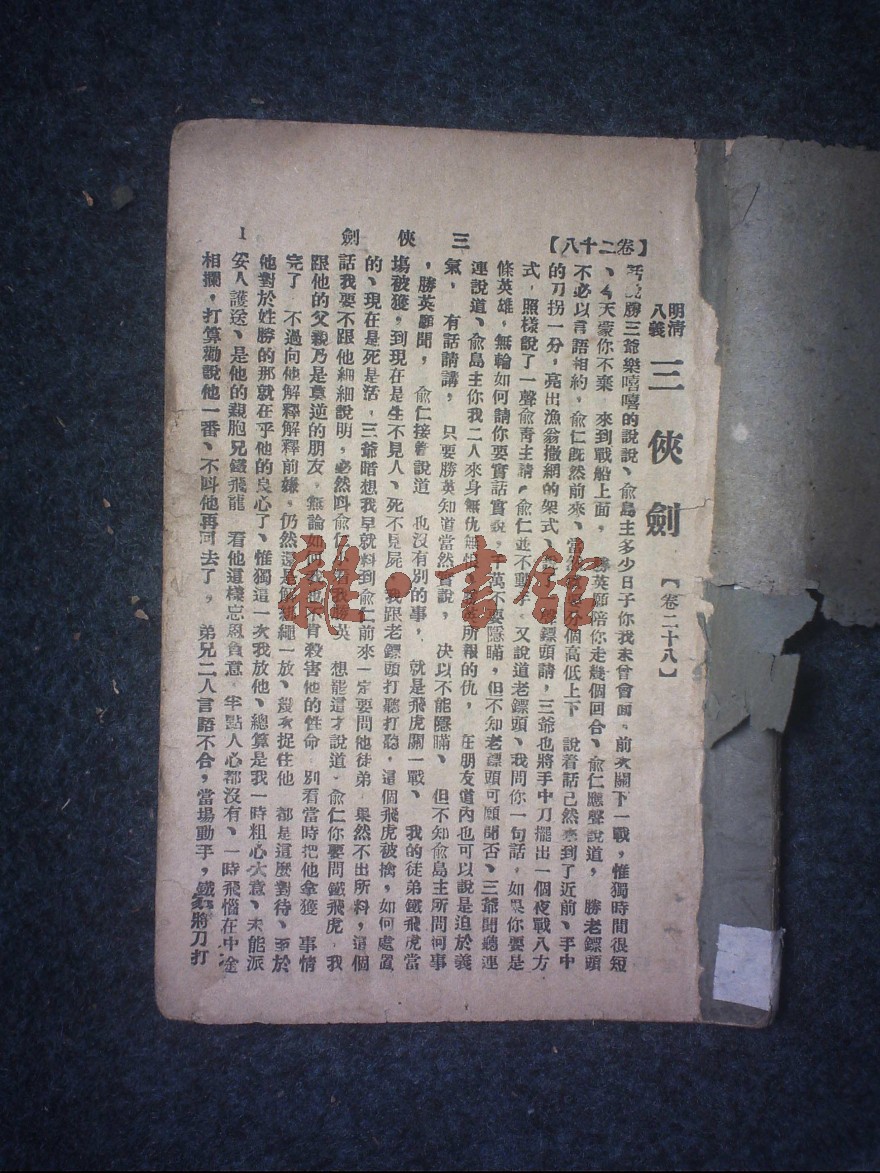 明清
八義
三俠劍【卷二十八】
【卷二十八】
三俠劍
1
勝三爺樂嘻嘻的說說、俞島主多少日子你我未曾會面。前次關下一戰，惟獨時間很短
、今天蒙你不棄 來到戰船上面， 勝英願陪你走幾個回合、俞仁應聲說道， 勝老鏢頭
不必以言語相約，俞仁旣然前來、當 個高低上下 說着話已然來到了近前、手中
的刀拐一分，亮出漁翁撒網的架式、 鏢頭請，三爺也將手中刀擺出一個夜戰八方
式，照樣說了一聲俞靑主請。俞仁並不動手。又說道老鏢頭、我問你一句話，如果你要是
條英雄，無輪如何請你要實話實說，千萬不要隱瞞，但不知老鏢頭可願聞否、三爺聞聽連
連說道、俞島主你我二人來身無仇無 所報的仇， 在朋友道內也可以說是迫於義
氣， 有話請講， 只要勝英知道當然實說， 决以不能隱瞞、 但不知俞島主所問何事
，勝英願聞， 俞仁接着說道 也沒有別的事， 就是飛虎關一戰、 我的徒弟鐵飛虎當
塲被獲，到現在是生不見人、死不見屍、我跟老鏢頭打聽打聽，這個飛虎被擒，如何處置
的、現在是死是活，三爺暗想我早就料到俞仁前來一定要問他徒弟 果然不出所料，這個
話我要不跟他細細說明，必然呌俞仁小看我勝英 想罷這才說道。俞仁你要問鐵飛虎，我
跟他的父親乃是莫逆的朋友，無論如何我也不肯殺害他的性命 別看當時把他拿獲 事情
完了 不過向他解釋解釋前嫌，仍然還是解綁繩一放、幾次捉住他 都是這麼對待、至於
他對於姓勝的那就在乎他的良心了、惟獨這一次我放他、總算是我一時粗心大意、未能派
妥人護送、是他的親胞兄鐵飛龍 看他這樣忘恩負意、半點人心都沒有、一時飛惱在中途
相攔，打算勸說他一番、不呌他再回去了， 弟兄二人言語不合，當塲動手，鐵 將刀打
龍·書館